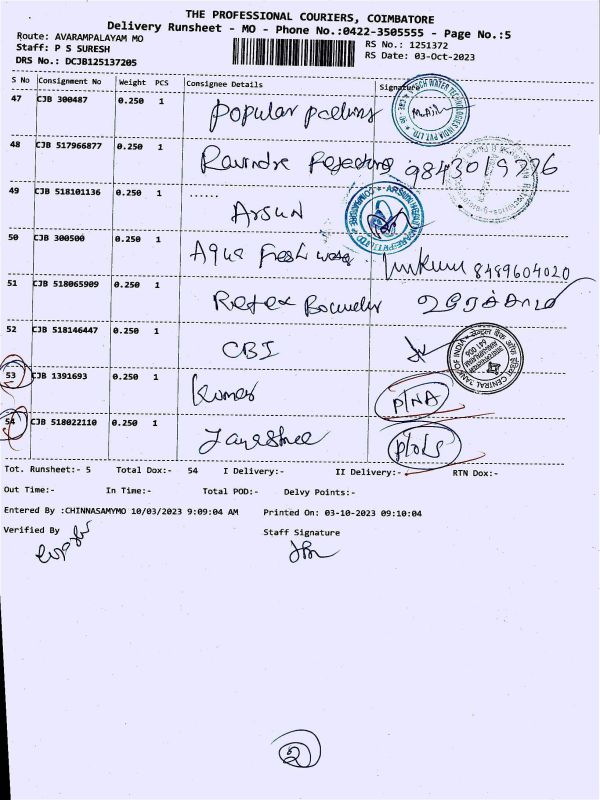 THE PROFESSIONAL COURIERS, COIMBATORE
Delivery Runsheet - MO - Phone No.:0422-3505555 - Page No.:5
Route: AVARAMPALAYAM MO
RS No.: 1251372
Staff: P S SURESH
RS Date: 03-Oct-2023
DRS No.: DCJB125137205
S No Consignment No Weight PCS Consignee Details Signature
47 CJB 300487 0.250 1 Popular
48 CJB 517966877 0.250 1 9843019776
49 CJB 518101136 0.250 1 ......
Arsun
50 CJB 300500 0.250 1 Aqua Fresh 8489604020
51 CJB 518065909 0.250 1
52 CJB 518146447 0.250 1 CBI
CENTRAL BANK OF INDIA
53 CJB 1391693 0.250 1 Kumar P/NA
54 CJB 518022110 0.250 1 Jayashree
Tot. Runsheet:- 5 Total Dox:- 54 I Delivery:- II Delivery:- RTN Dox:-
Out Time:- In Time:- Total POD:- Delvy Points:-
Entered By :CHINNASAMYMO 10/03/2023 9:09:04 AM Printed On: 03-10-2023 09:10:04
Verified By Staff Signature
2